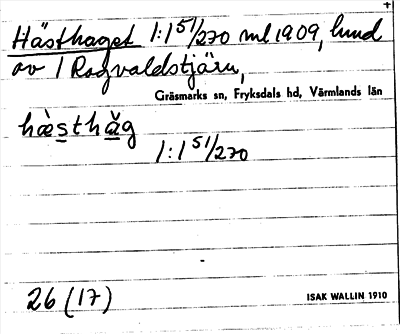 Hästhaget 1:1 51/270 ml 1909, hmd
av 1 Ragvaldstjärn,
Gräsmarks sn, Fryksdals hd, Värmlands län
hæ̀sthăg
1:1 51/270
26 (17)
ISAK WALLIN 1910